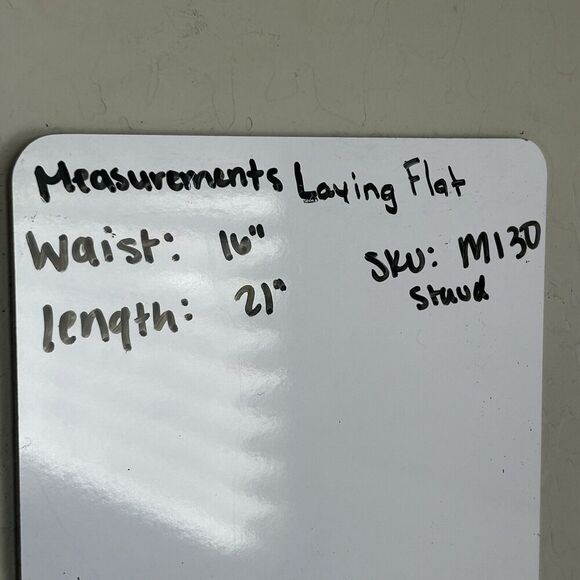 Measurements Laying Flat
Waist: 16"
SKU: M130
Staud
length: 21"